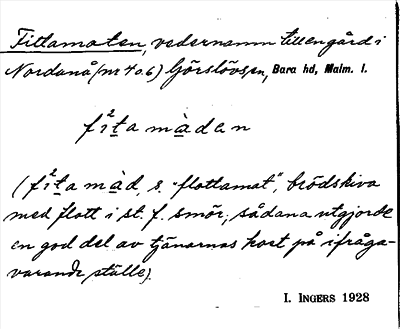 Fittamaten, vedernamn till en gård i
Nordanå (nr 4 o. 6) Görslövs sn, Bara hd, Malm. l.
fi²ta màden
(fi²ta màd, s. "flottamat", brödskiva
med flott i st. f. smör; sådana utgjorde
en god del av tjänarnas kost på ifråga-
varande ställe).
I. INGERS 1928